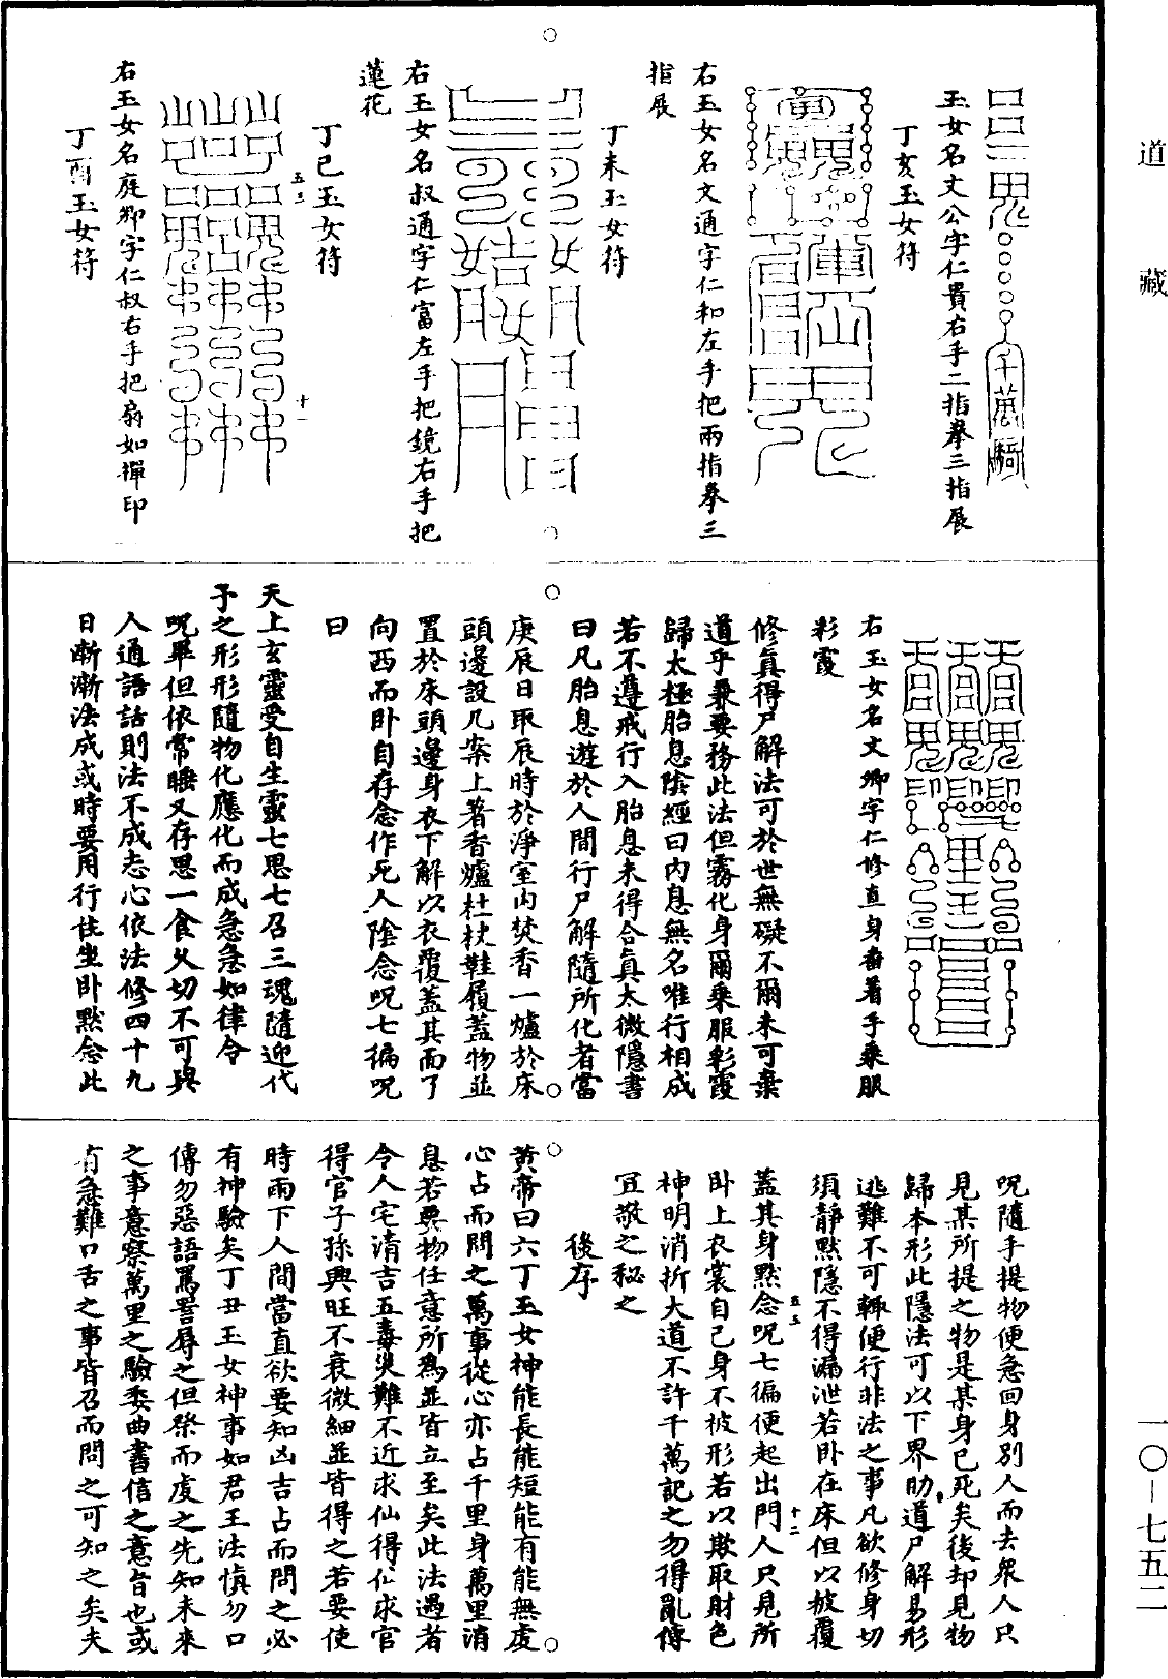 道藏
一〇—七五二
玉女名文公字仁貴右手二指拳三指展
丁亥玉女符
右玉女名文通字仁和左手把兩指拳三
指展
丁未玉女符
右玉女名叔通字仁富左手把鏡右手把
蓮花
丁巳玉女符
五三
十一
右玉女名庭卿字仁叔右手把扇如撣印
丁酉玉女符
右玉女名文卿字仁修直身番著手乘服
彩霞
修真得尸解法可於世無礙不爾未可棄
道乎兼要務此法但霧化身爾乘服彩霞
歸太極胎息陰經曰內息無名唯行相成
若不遵戒行入胎息未得合真太微隱書
曰凡胎息遊於人間行尸解隨所化者當
庚辰日取辰時於淨室內焚香一爐於床
頭邊設几案上著香爐柱杖鞋履蓋物並
置於床頭邊身衣下解以衣覆蓋其面了
向西而卧自存念作死人陰念呪七徧呪
曰
天上玄靈受自生靈七思七召三魂隨迎代
予之形形隨物化應化而成急急如律令
呪畢但依常睡又存思一食久切不可與
人通語話則法不成志心依法修四十九
日漸漸法成或時要用行住坐卧默念此
呪隨手提物便急回身別人而去衆人只
見某所提之物是某身已死矣後却見物
歸本形此隱法可以下界助道尸解易形
逃難不可輒便行非法之事凡欲修身切
須靜默隱不得漏泄若卧在床但以被覆
五五
十二
蓋其身默念呪七徧便起出門人只見所
卧上衣裳自己身不被形若以欺取財色
神明消折大道不許千萬記之勿得亂傳
宜敬之秘之
後序
黃帝曰六丁玉女神能長能短能有能無虔
心占而問之萬事從心亦占千里身萬里消
息若要物任意所為並皆立至矣此法遇者
令人宅清吉五毒災難不近求仙得仙求官
得官子孫興旺不衰微細並皆得之若要使
時雨下人間當直欲要知凶吉占而問之必
有神驗矣丁丑玉女神事如君王法慎勿口
傳勿惡語罵詈辱之但祭而虔之先知未來
之事意察萬里之驗委曲書信之意旨也或
有急難口舌之事皆召而問之可知之矣夫